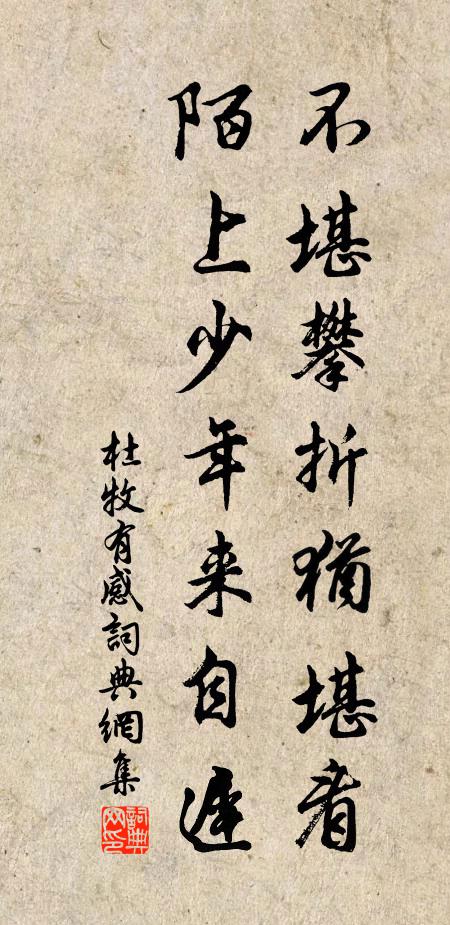 不堪攀折猶堪看
陌上少年来自遲
杜牧有感詞典網集
詞典网印